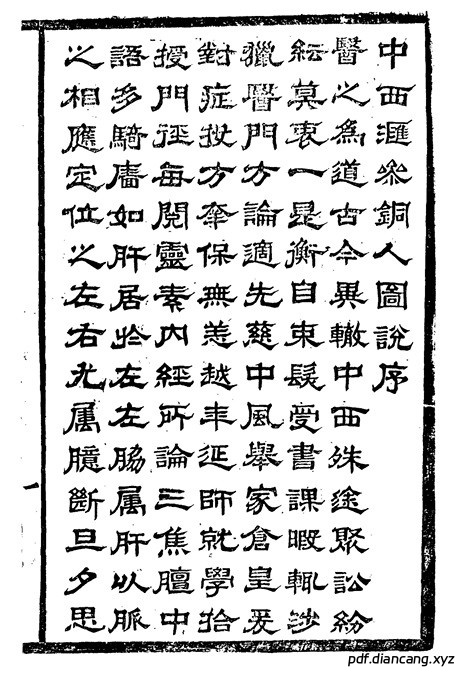 中西滙叅銅人圖說序
醫之為道古今異轍中西殊途聚訟紛
紜莫衷一是衡自束髮受書課暇輒涉
獵醫門方論適先慈中風舉家倉皇爰
對症投方幸保無恙越年延師就學拾
授門徑每閱靈素內經所論三焦膻中
語多騎牆如肝居於左左脇属肝以脈
之相應定位之左右尤属臆斷旦夕思
pdf.diancang.xyz